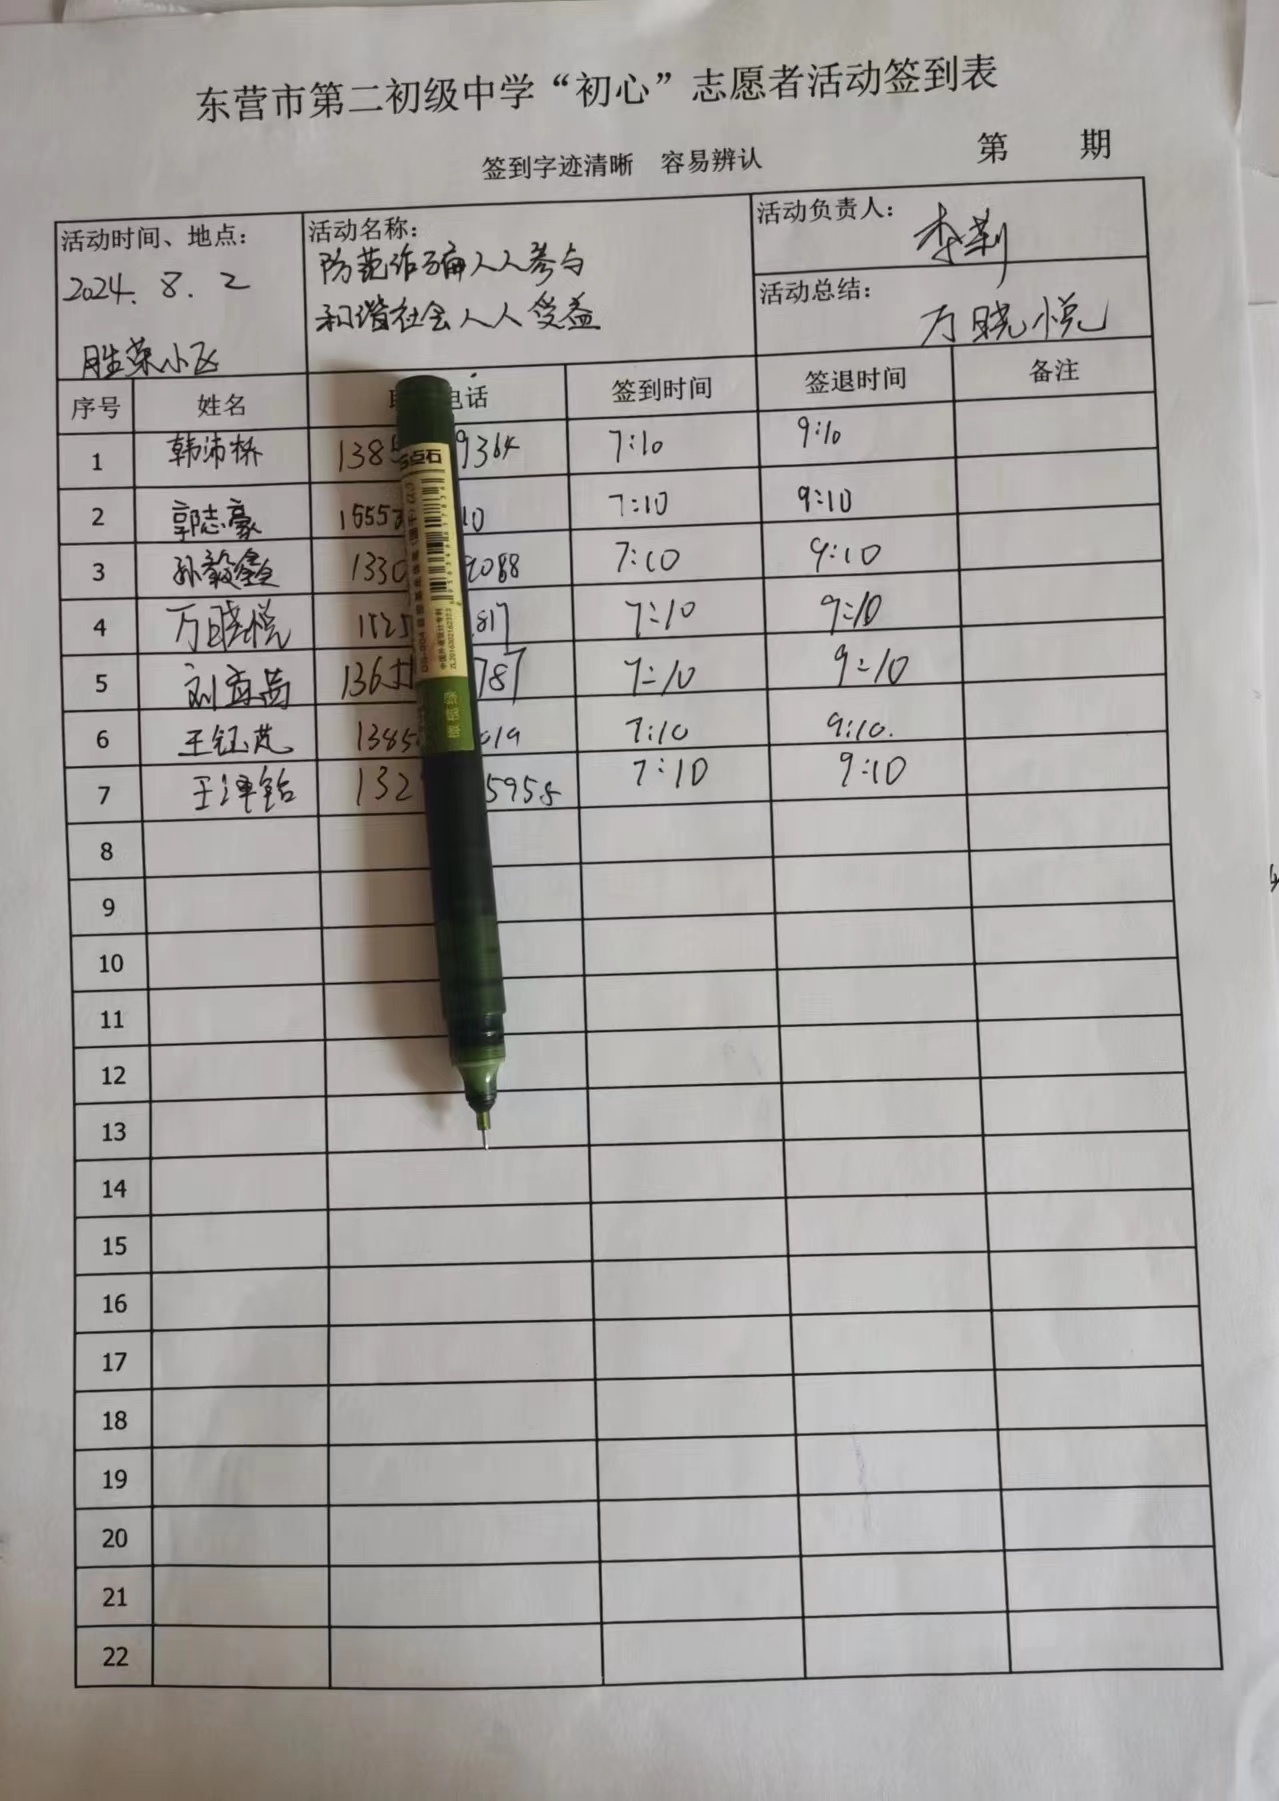 东营市第二初级中学“初心”志愿者活动签到表
签到字迹清晰 容易辨认
第 期
活动时间、地点:
2024. 8. 2
胜荣小区
活动名称:
防范诈骗人人参与
和谐社会人人受益
活动负责人:
李莉
活动总结:
万晓悦
序号 姓名 电话 签到时间 签退时间 备注
1 韩沛桥 1385 9364 7:10 9:10
2 郭志豪 1555 10 7:10 9:10
3 孙毅鑫 1330 9088 7:10 9:10
4 万晓悦 1525 817 7:10 9:10
5 刘 1365 787 7:10 9:10
6 王钰芃 1385 019 7:10 9:10.
7 王泽铭 132 5958 7:10 9:10
8
9
10
11
12
13
14
15
16
17
18
19
20
21
22
点石